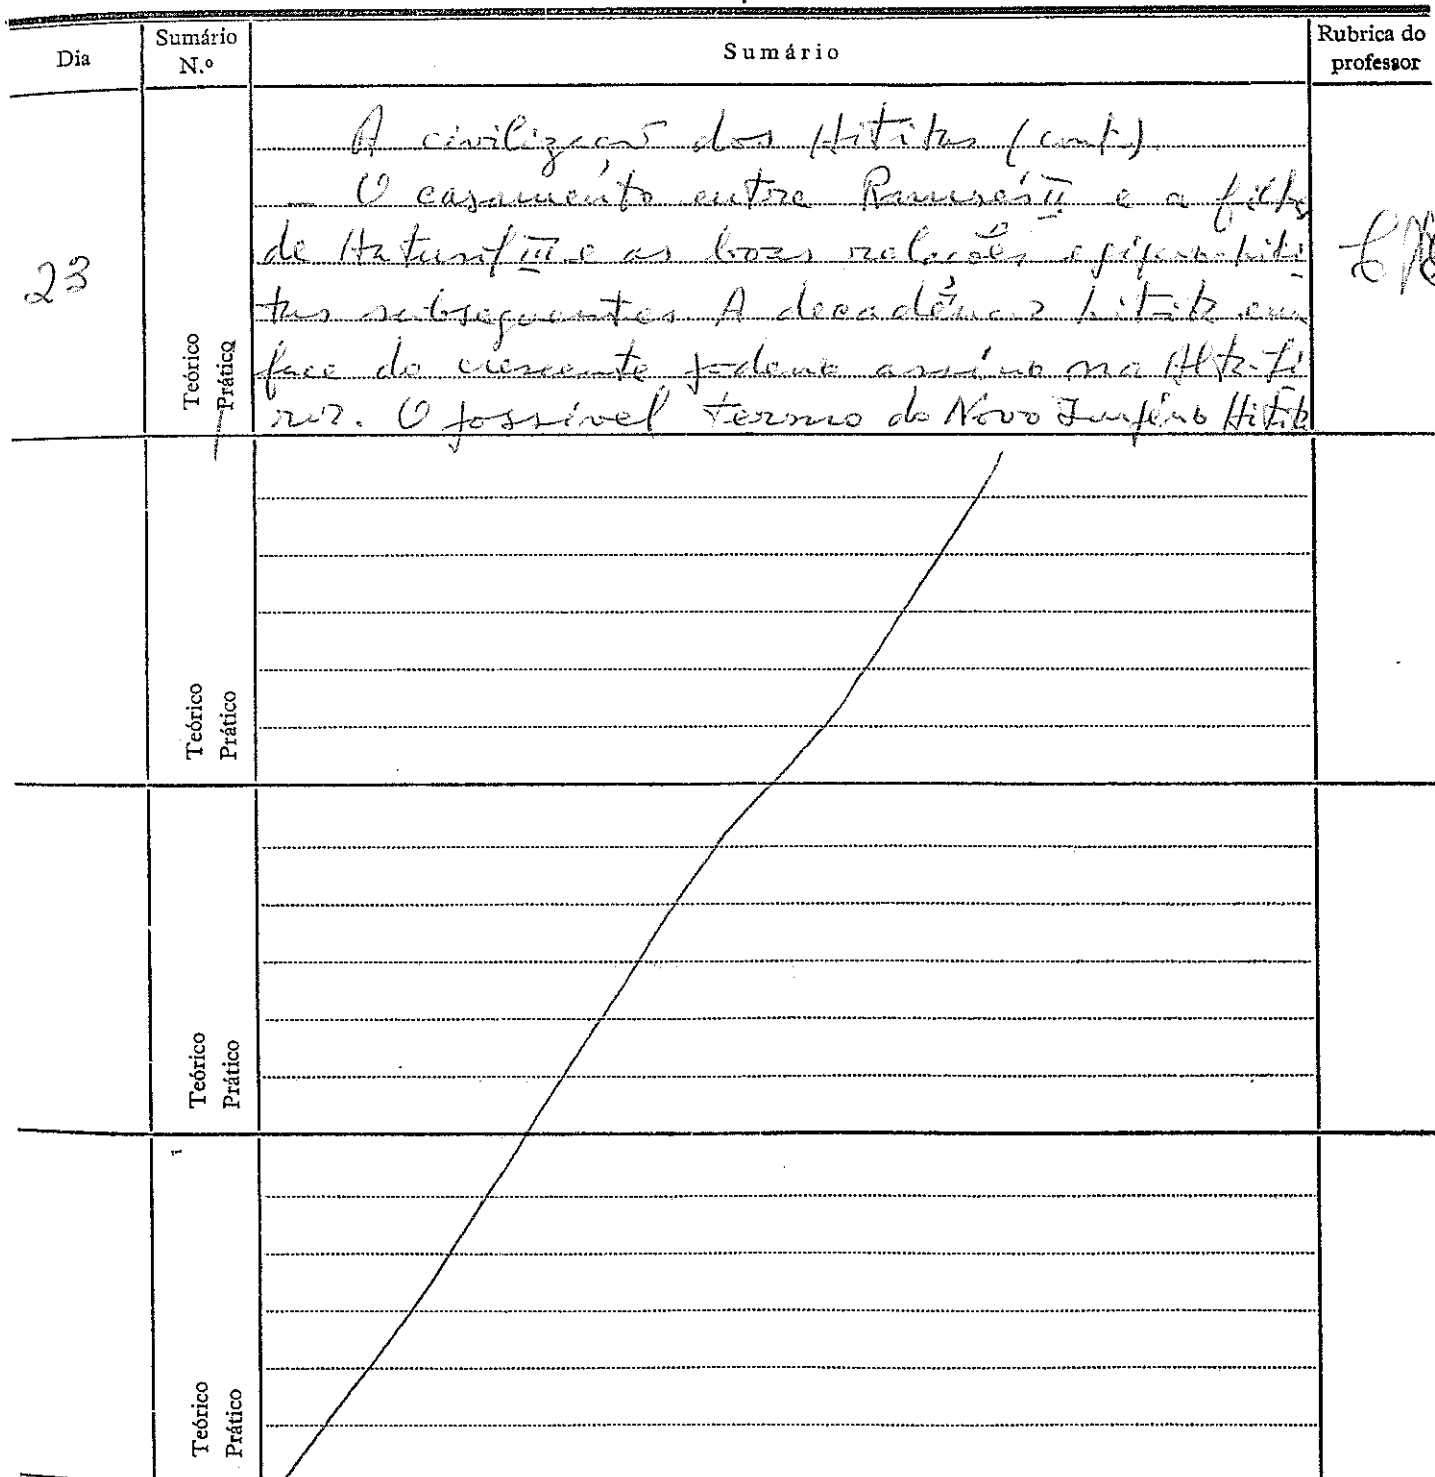 Dia
Sumário
N.º
Sumário
Rubrica do
professor
23
Teórico
Prático
A civilização dos Hititas (cont.)
– O casamento entre Ramsés II e a filha
de Hatusil III e as boas relações egípcio-hiti
tas subsequentes. A decadência hitita em
face do crescente poderio assírio na Alta Sí
ria. O possível termo do Novo Império Hitita
Teórico
Prático
Teórico
Prático
Teórico
Prático